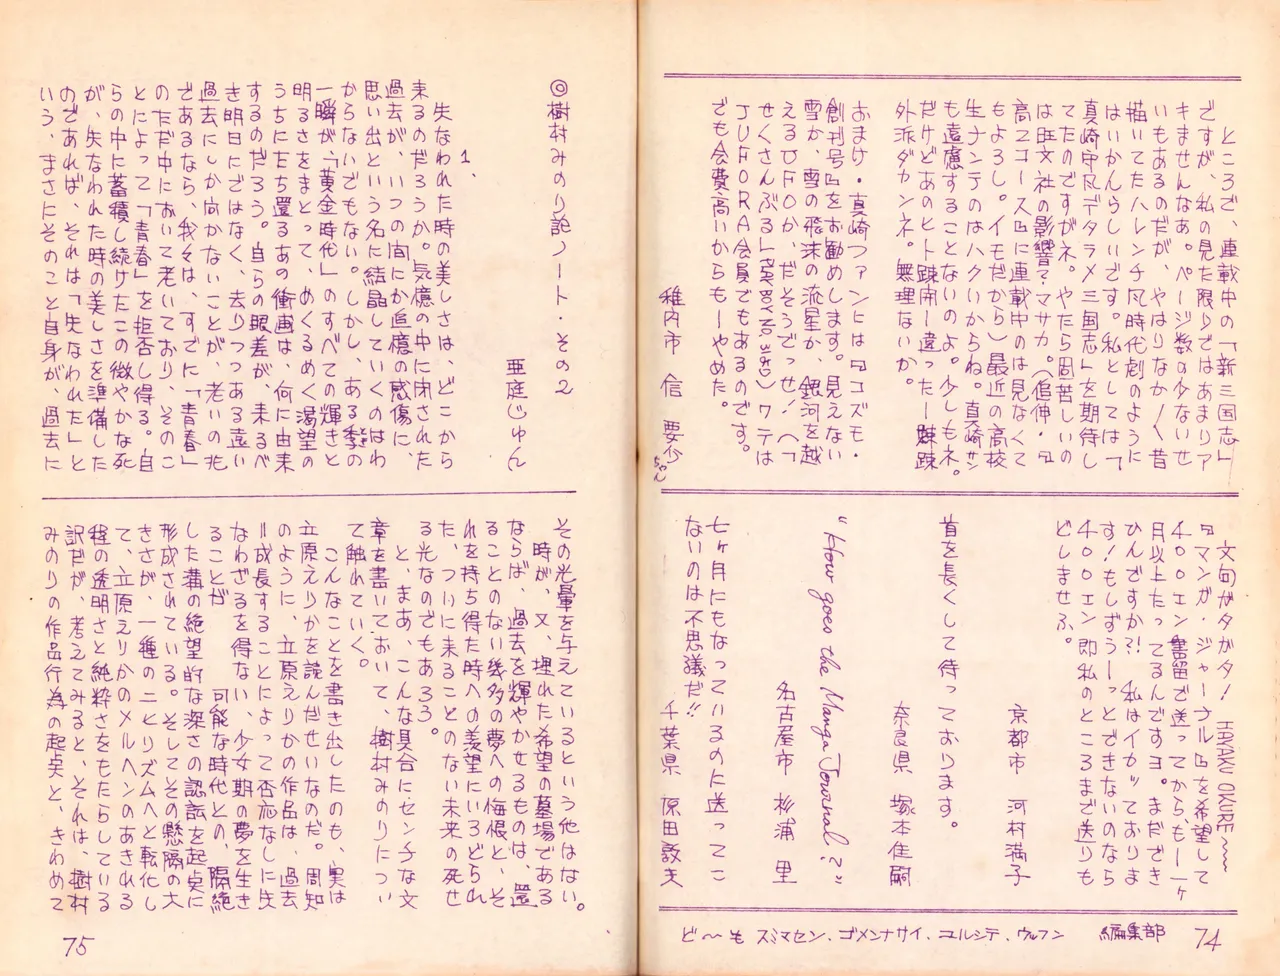 ところで、連載中の「新三国志」
ですが、私の見た限りではあまりア
キませんなあ。ページ数の少ないせ
いもあるのだが、やはりなか〳〵昔
描いてたハレンチ凡時代劇のように
はいかんらしいです。私としては「
真崎守凡デタラメ三国志」を期待し
てたのですがネ。やたら固苦しいの
は旺文社の影響？マサカ。（追伸・『
高2コース』に連載中のは見なくて
もよろし。イモだから）最近の高校
生ナンテのはハクいからね。真崎サン
も遠慮することないのよ。少しもネ。
だけどあのヒト疎開ー違ったー
外派ダカンネ。無理ないか。
おまけ・真崎ファンには『コズモ・
創刊号』をお勧めします。見えない
雪か、雪の飛沫の流星か、銀河を越
えるUFOか、だそうでっせ！（「
せくさんぶる」）ワテは
JUFORA会員でもあるのです。
でも会費高いからもーやめた。
稚内市 信 要少ちゃん
文句がタがタ！ HAYAKU OKURE〜〜
『マンガ・ジャーナル』を希望して
400エン書留で送ってから、も一ヶ
月以上たってるんですヨ。まだでき
ひんですか？！ 私はイカッておりま
す！もしずうーっとできないのなら
400エン即私のところまで送りも
どしませふ。
京都市 河村満子
首を長くして待っております。
奈良県 塚本佳嗣
"How goes the Manga Journal?"
名古屋市 杉浦 里
七ヶ月にもなっているのに送ってこ
ないのは不思議だ!!
千葉県 原田敦夫
ど〜も スミマセン、ゴメンナサイ、ユルシテ、ウッフン 編集部
74
◎樹村みのり論ノート・その2
亜庭じゅん
1、
失なわれた時の美しさは、どこから
来るのだろうか。気憶の中に閉された
過去が、いつの間にか追憶の感傷に、
思い出という名に結晶していくのはわ
からないでもない。しかし、ある季の
一瞬が「黄金時代」のすべての輝きと
明るさをまとって、めくるめく渇望の
うちにたち還るあの衝画は、何に由来
するのだろう。自らの眼差が、来るべ
き明日にではなく、去りつつある遠い
過去にしか向かないことが、老いの兆
であるなら、我々は、すでに「青春」
のただ中において老いており、そのこ
とによって「青春」を拒否し得る。自
らの中に蓄積し続けたこの微やかな死
が、失なわれた時の美しさを準備した
のであれば、それは「失なわれた」と
いう、まさにそのこと自身が、過去に
その光暈を与えているという他はない。
時が、又、埋れた希望の墓場である
ならば、過去を輝やかせるものは、還
ることのない幾多の夢への悔恨と、そ
れを持ち得た時への羨望にいろどられ
た、ついに来ることのない未来の死せ
る光なのでもあろう。
と、まあ、こんな具合にセンチな文
章を書いておいて、樹村みのりについ
て触れていく。
こんなことを書き出したのも、実は
立原えりかを読んだせいなのだ。周知
のように、立原えりかの作品は、過去
＝成長することによって否応なしに失
なわざるを得ない、少女期の夢を生き
ることが 可能な時代との、隔絶
した溝の絶望的な深さの認識を起点に
形成されている。そしてその懸隔の大
きさが、一種のニヒリズムへと転化し
て、立原えりかのメルヘンのあきれる
程の透明さと純粋さをもたらしている
訳だが、考えてみると、それは、樹村
みのりの作品行為の起点と、きわめて
75